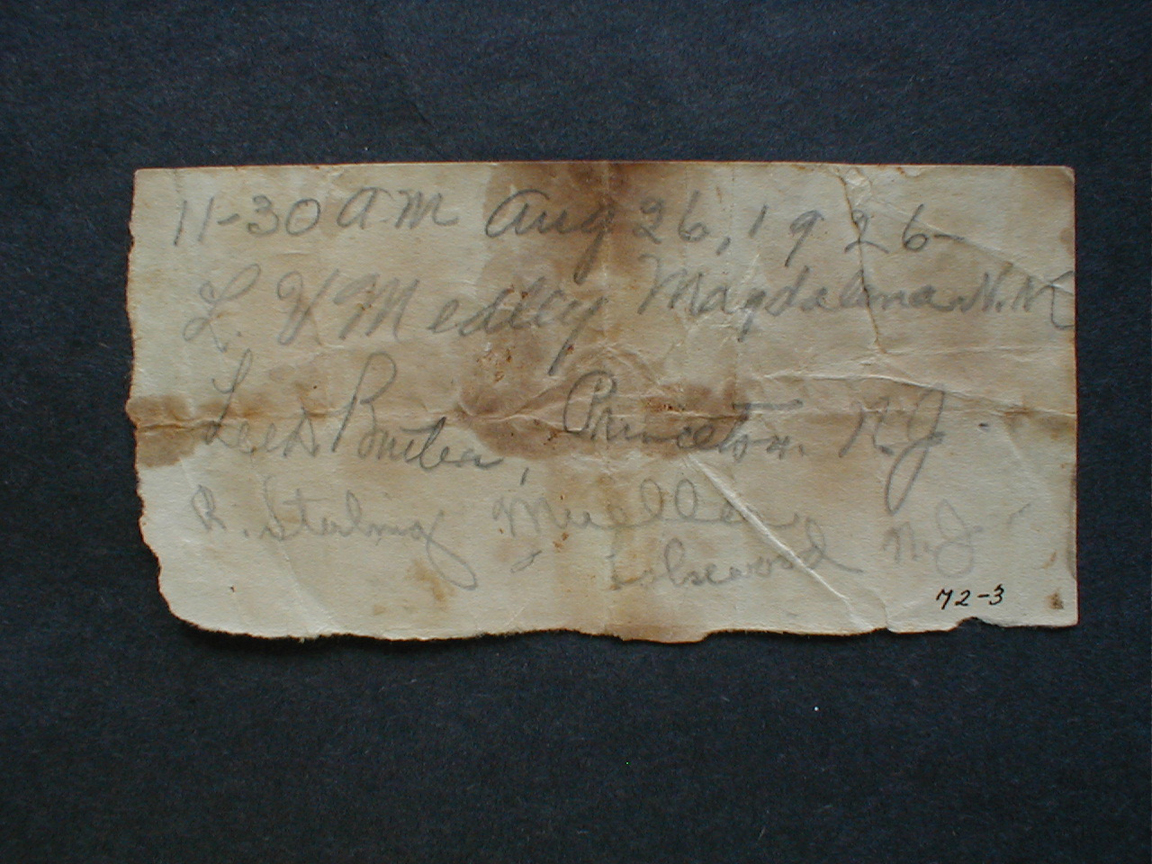 11-30 AM Aug 26, 1926-
L. V Medley Magdalena N.M
Lee D Butler, Princeton. N.J -
R. Sterling Mueller
N.J -
72-3